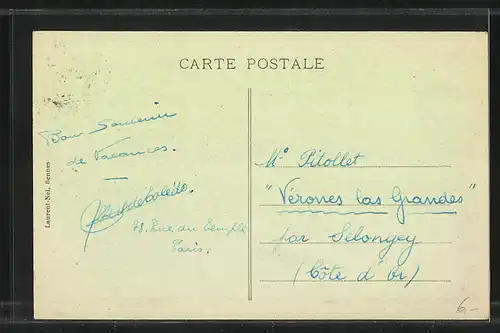 CARTE POSTALE
Laurent-Nel, Rennes
Bon Souvenir
de Vacances.
Rue du Temple
Paris.
Mr Pitollet
"Vérones las Grandes"
par Selongey
(Côte d'Or)
6.-